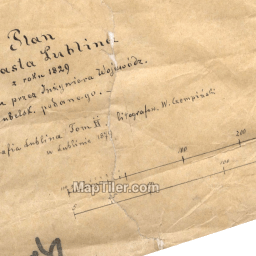 Plan
asta Lublina
z roku 1829
przez Inżyniera Wojewódz.
podanego.
afia Lublina Tom II. litografow. W. Czempiński
w Lublinie 1879
100
200
100
MapTiler.com